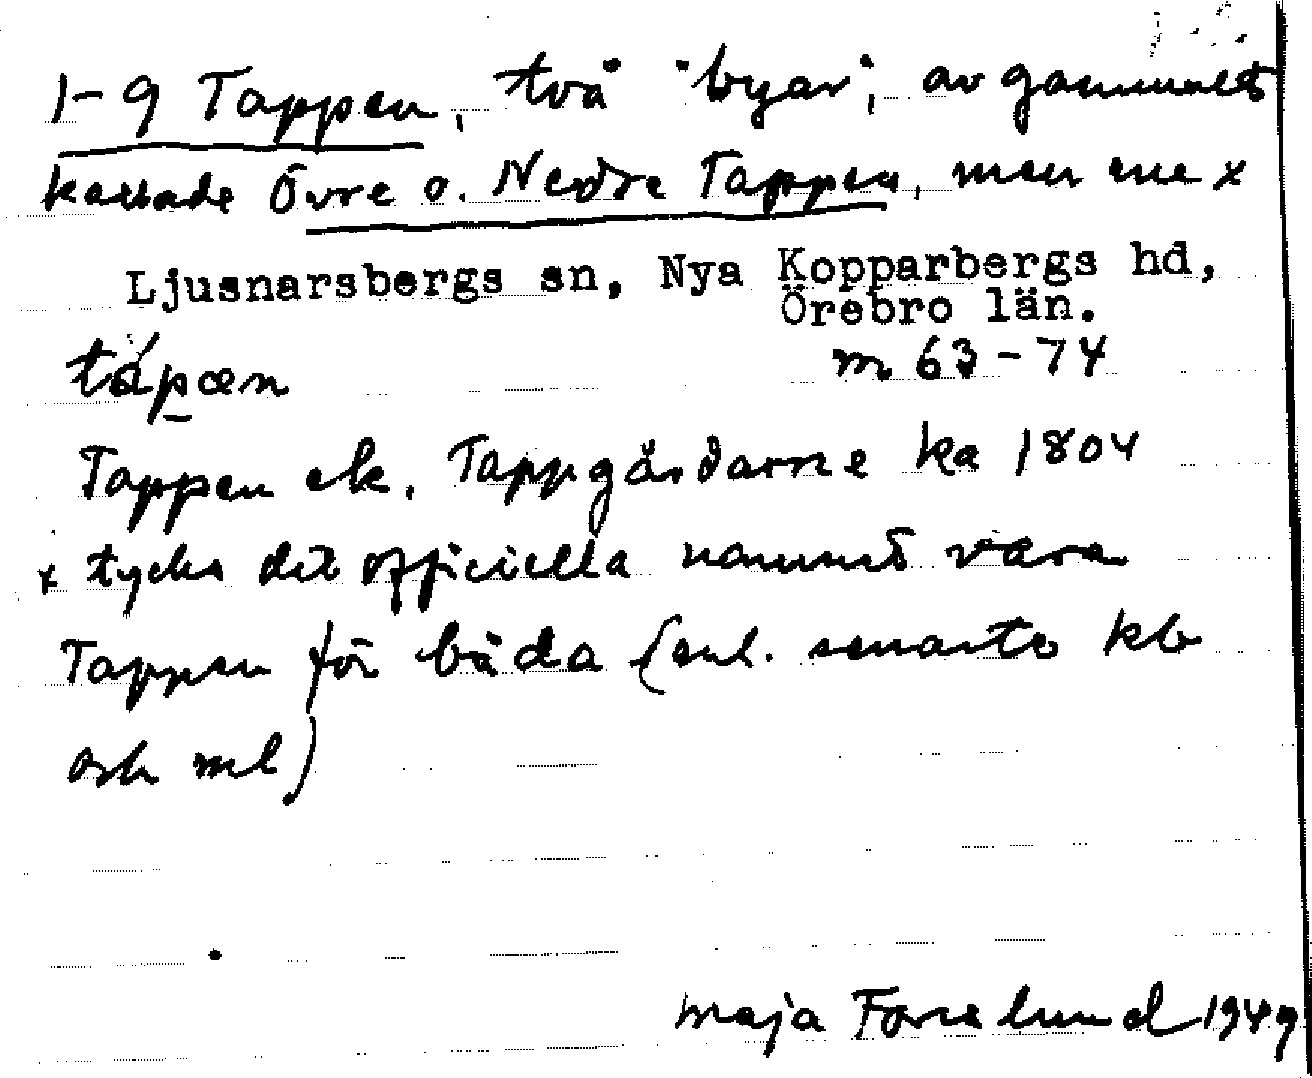 1-9 Tappen, två "byar", av gammalt
kallade Övre o. Nedre Tappen, men nu x
Ljusnarsbergs sn, Nya Kopparbergs hd,
Örebro län.
tápæn m 63-74
Tappen ek. Tappgårdarne ka 1804
x tycks det officiella namnet vara
Tappen för båda (enl. senaste kb
och ml)
Maja Forslund 1949